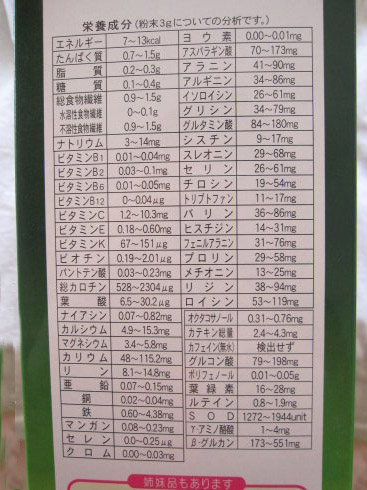 栄養成分(粉末3gについての分析です。)
エネルギー 7〜13kcal
たんぱく質 0.7〜1.5g
脂質 0.2〜0.4g
糖質 0.1〜0.4g
総食物繊維 0.9〜1.5g
水溶性食物繊維 0〜0.1g
不溶性食物繊維 0.9〜1.5g
ナトリウム 3〜14mg
ビタミンB1 0.01〜0.04mg
ビタミンB2 0.03〜0.1mg
ビタミンB6 0.01〜0.05mg
ビタミンB12 0〜0.04μg
ビタミンC 1.2〜10.3mg
ビタミンE 0.18〜0.60mg
ビタミンK 67〜151μg
ビオチン 0.19〜2.01μg
パントテン酸 0.03〜0.23mg
総カロチン 528〜2304μg
葉酸 6.5〜30.2μg
ナイアシン 0.07〜0.82mg
カルシウム 4.9〜15.3mg
マグネシウム 3.4〜5.8mg
カリウム 48〜115.2mg
リン 8.1〜14.8mg
亜鉛 0.07〜0.15mg
銅 0.02〜0.04mg
鉄 0.60〜4.38mg
マンガン 0.08〜0.23mg
セレン 0.0〜0.25μg
クロム 0.00〜0.03mg
ヨウ素 0.00〜0.01mg
アスパラギン酸 70〜173mg
アラニン 41〜90mg
アルギニン 34〜86mg
イソロイシン 26〜61mg
グリシン 34〜79mg
グルタミン酸 84〜180mg
シスチン 9〜17mg
スレオニン 29〜68mg
セリン 26〜61mg
チロシン 19〜54mg
トリプトファン 11〜17mg
バリン 36〜86mg
ヒスチジン 14〜31mg
フェニルアラニン 31〜76mg
プロリン 29〜58mg
メチオニン 13〜25mg
リジン 38〜94mg
ロイシン 53〜119mg
オクタコサノール 0.31〜0.76mg
カテキン総量 2.4〜4.3mg
カフェイン(無水) 検出せず
グルコン酸 79〜198mg
ポリフェノール 0.01〜0.05g
葉緑素 16〜28mg
ルテイン 0.8〜1.9mg
SOD 1272〜1944unit
γ-アミノ酪酸 1〜4mg
β-グルカン 173〜551mg
姉妹品もあります